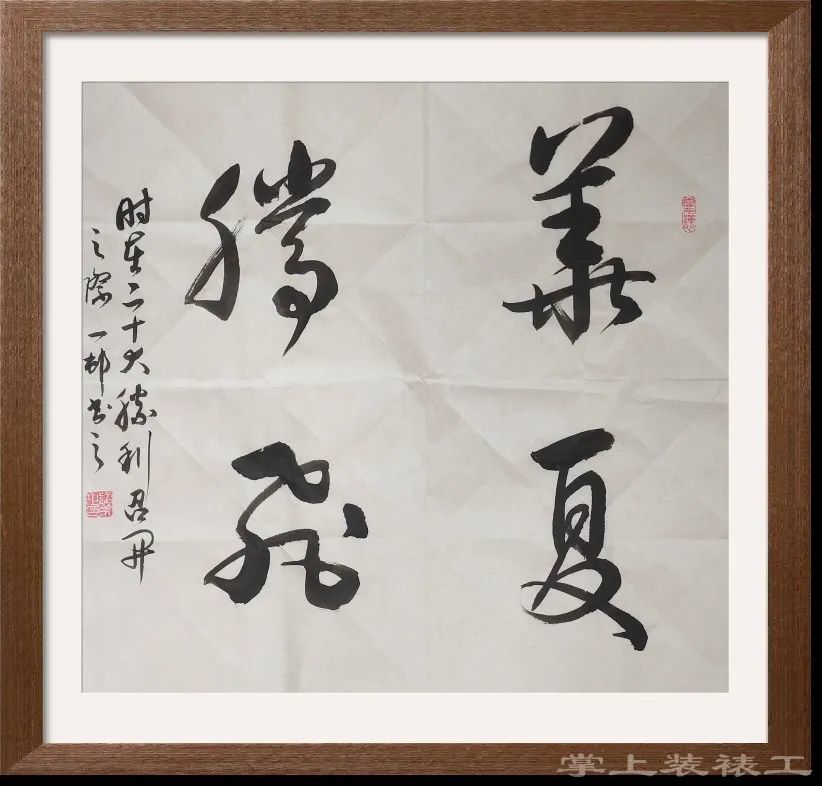 華夏
騰飛
时在二十大勝利召開
之際一邨书之
掌上装裱工